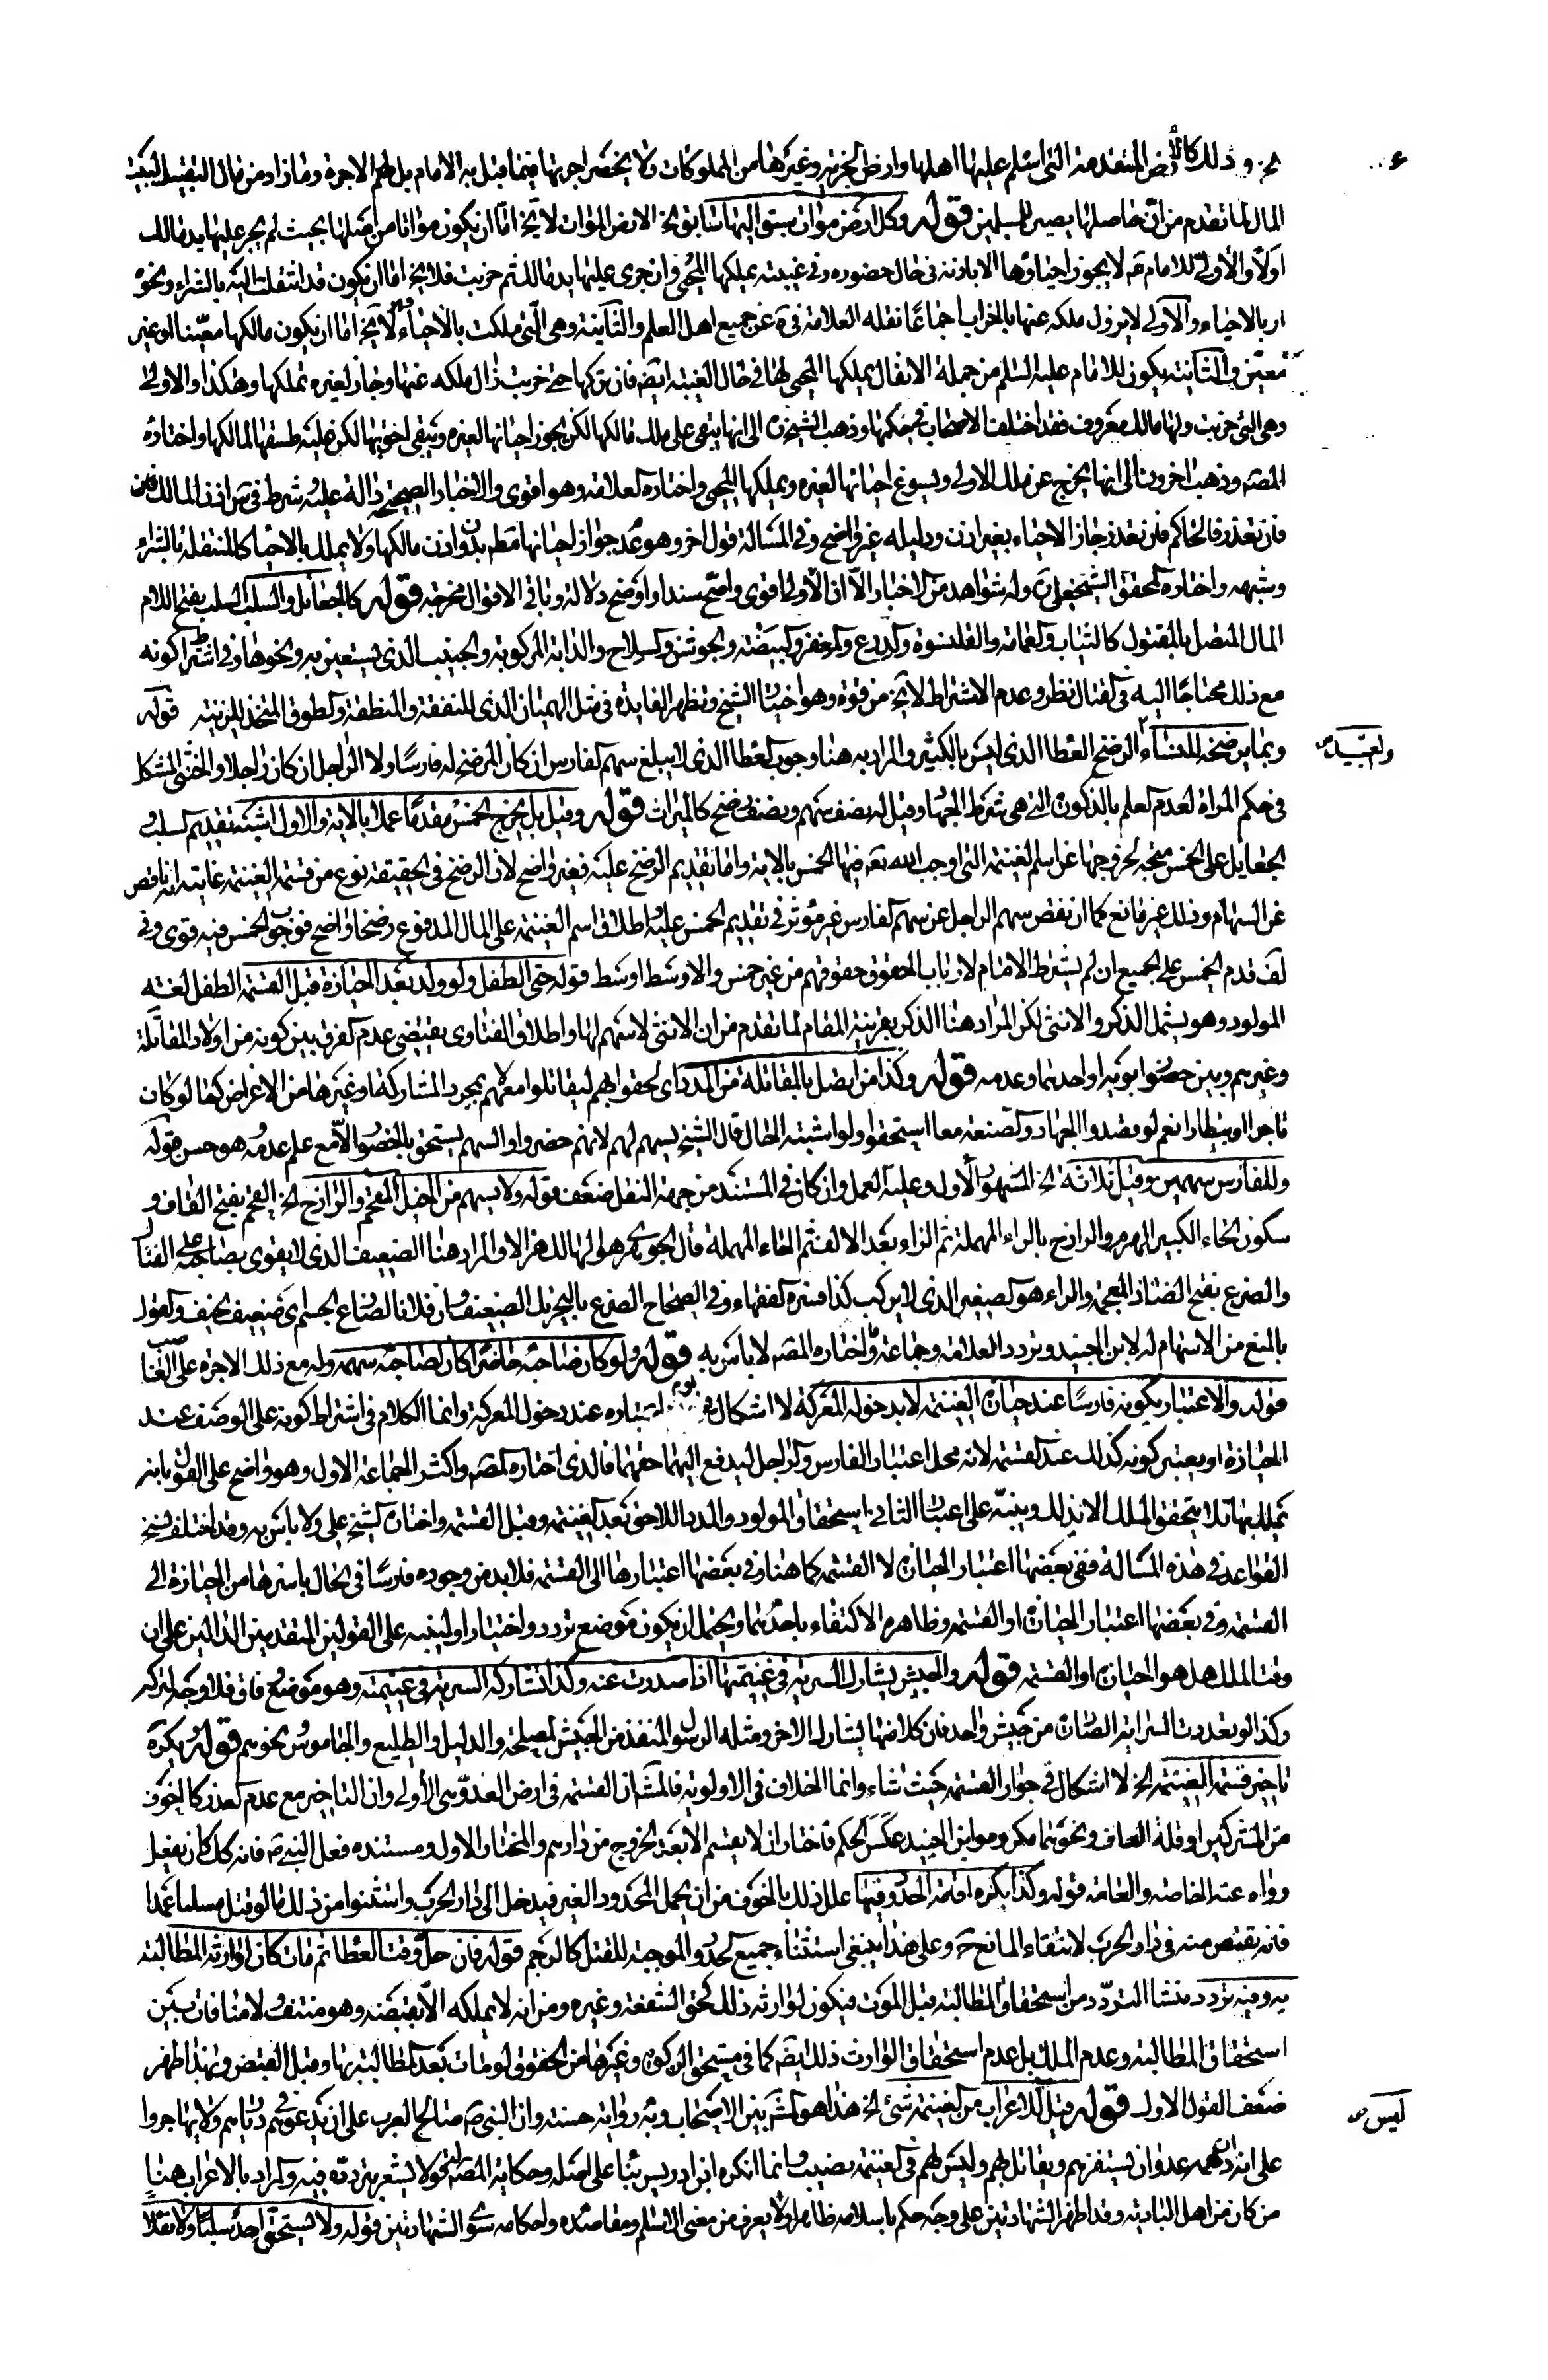 وذلك كالأرض المتقدمة التي اسلم عليها اهلها وارض الجزية وغيرها من المملوكات ولا يختص اجرتها فيما قبل به الامام بل لهم الاجرة وما زاد من مال التقبيل لبيت
المال لما تقدم من ان حاصلها يصير للمسلمين قوله وكل ارض موات سبق اليها سابق الخ الارض الموات لا يخ اما ان يكون مواتا من اصلها بحيث لم يجر عليها يد مالك
اولا والأولى للامام ع م لا يجوز احياؤها الا باذنه في حال حضوره وفي غيبته يملكها المحيي وان جرى عليها يد مالك ثم خربت فلا يخ اما ان يكون قد انتقلت اليه بالشراء ونحوه
او بالاحياء والاولى لا يزول ملكه عنها بالخراب اجماعا نقله العلامة في ة عن جميع اهل العلم والثانية وهي التي ملكت بالاحياء لا يخ اما ان يكون مالكها معينا او غير
معين والثانية يكون للامام عليه السلم من جملة الانفال يملكها المحيي لها في حال الغيبة ايضه فان تركها حتى خربت زال ملكه عنها وجاز لغيره تملكها وهكذا والاولى
وهي التي خربت ولها مالك معروف فقد اختلف الاصحاب في حكمها وذهب الشيخ ره الى انها يبقى على ملك مالكها لكن يجوز احيائها لغيره ويبقى احق بها لكن عليه طسقها لمالكها واختاره
المصه وذهب اخرون الى انها يخرج عن ملك الاولى ويسوغ احيائها لغيره ويملكها المحيي واختاره العلامة وهو اقوى والاخبار الصحيحة دالة عليه وشرط في س اذن المالك
فان تعذر فالحاكم فان تعذر جاز الاحياء بغير اذن ودليله غير واضح وفي المسالة قول اخر وهو عدم جواز احيائها مط بدون اذن مالكها ولا يملك بالاحياء كالمنتقلة بالشراء
وشبهه واختاره المحقق الشيخ علي ره وله شواهد من الاخبار الا ان الاولى اقوى واصح سندا واوضح دلالة وباقي الاقوال مخرجة قوله كالجعائل والسلب السلب بفتح اللام
المال المتصل بالمقتول كالثياب والعمامة والقلنسوة والدرع والمغفر والبيضة والجوشن والسلاح والدابة المركوبة والجنيب الذي يستعين به ونحوها وفي اشتراط كونه
مع ذلك محتاجا اليه في القتال نظر وعدم الاشتراط لا يخ من قوة وهو اختيار الشيخ وتظهر الفايدة في مثل الهميان الذي للنفقة والمنطقة والطوق المتخذ للزينة قوله
وبما يرضخه للنساء الرضخ العطا الذي ليس بالكثير والمراد به هنا وجوب العطا الذي لا يبلغ سهم الفارس ان كان المرضخ له فارسا ولا الراجل ان كان راجلا والخنثى المشكل
والعبيد صح
في حكم المراة لعدم العلم بالذكورة التي هي شرط الجهاد وقيل له نصف سهم ونصف رضخ كالميراث قوله وقيل بل يخرج الخمس مقدما عملا بالاية والاول اشبه تقديم السلب و
الجعايل على الخمس متجه لخروجها عن اسم الغنيمة التي اوجب الله تعه فيها الخمس بالاية واما تقديم الرضخ عليه فغير واضح لان الرضخ في الحقيقة نوع من قسمة الغنيمة غايته انه ناقص
عن السهام وذلك غير مانع كما ان نقص سهم الراجل عن سهم الفارس غير مؤثر في تقديم الخمس عليه واطلاق اسم الغنيمة على المال المدفوع رضخا واضح فوجوب الخمس فيه قوى وفي
لف قدم الخمس على الجميع ان لم يشترط الامام لارباب الحقوق حقوقهم من غير خمس والاوسط اوسط قوله حتى الطفل ولو ولد بعد الحيازة قبل القسمة الطفل لغة
المولود وهو يشمل الذكر والانثى لكن المراد هنا الذكر بقرينة المقام لما تقدم من ان الانثى لا سهم لها واطلاق الفتاوى يقتضي عدم الفرق بين كونه من اولاد المقاتلة
وغيرهم وبين حضور ابويه او احدهما وعدمه قوله وكذا من اتصل بالمقاتلة من المدد اي لحقوا بهم ليقاتلوا معهم لا بمجرد المشاركة او غيرها من الاغراض كما لو كان
تاجرا او بيطارا نعم لو قصدوا الجهاد والصنعة معا استحقوا ولو اشتبه الحال قال الشيخ يسهم لهم لانهم حضروا والسهم يستحق بالحضور الا مع علم عدمه وهو حسن قوله
وللفارس سهمين وقيل ثلاثة الخ المشهور الأول وعليه العمل وان كان في المستند من جهة النقل ضعف قوله ولا يسهم من الخيل القحم والرازح الخ القحم بفتح القاف و
سكون الحاء الكبير الهرم والرازح بالراء المهملة ثم الزاء بعد الالف ثم الحاء المهملة قال الجوهري هو الهالك هزالا والمراد هنا الضعيف الذي لا يقوى بصاحبه على القتال
والضرع بفتح الضاد المعجمة والراء هو الصغير الذي لا يركب كذا فسره الفقهاء وفي الصحاح الضرع بالتحريك الضعيف وان فلانا لضارع الجسم اي ضعيف نحيف والقول
بالمنع من الاسهام له لابن الجنيد وتردد العلامة وجماعة وما اختاره المصه لا باس به قوله ولو كان صاحبه حاضرا كان لصاحبه سهمه وله مع ذلك الاجرة على الغاصب
قوله والاعتبار بكونه فارسا عند حيازة الغنيمة لا بدخوله المعركة لا اشكال في عدم اعتباره عند دخول المعركة وانما الكلام في اشتراط كونه على الوصف عند
الحيازة او يعتبر كونه كذلك عند القسمة لانه محل اعتبار الفارس والراجل ليدفع اليهما حقهما فالذي اختاره المصه واكثر الجماعة الاول وهو واضح على القول بانه
تملك بها لتحقق الملك الا بذلك وينبه على اعتبار الثاني استحقاق المولود والمدد اللاحق بعد الغنيمة وقبل القسمة واختاره الشيخ علي ولا باس به وقد اختلف نسخ
القواعد في هذه المسالة ففي بعضها اعتبار الحيازة لا القسمة كما هنا وفي بعضها اعتبارها الى القسمة فلا بد من وجوده فارسا في الحال باسرها من الحيازة الى
القسمة وفي بعضها اعتبار الحيازة او القسمة وظاهره الاكتفاء باحدهما ويحتمل ان يكون موضع تردد واختيار او لينبه على القولين المتقدمين الدالين على ان
وقت الملك هل هو الحيازة او القسمة قوله والجيش يشارك السرية في غنيمتها اذا صدرت عنه وكذا تشاركه السرية في غنيمته وهو موضع وفاق فلا وجه لتركه
وكذا لو تعددت السرايا الصادرة من جيش واحد فان كلا منها يشارك الاخر ومثله الرسول المنفذ من الجيش لمصلحته والدليل والطليع والجاسوس ونحوهم قوله يكره
تاخير قسمة الغنيمة الخ لا اشكال في جواز القسمة حيث شاء وانما الخلاف في الاولوية فالمشهور ان القسمة في ارض العدو هي الأولى وان التاخير مع عدم العذر كالخوف
من المشركين او قلة العلف ونحوهما مكروه وابن الجنيد عكس الحكم فاختار ان لا يقسم الا بعد الخروج من دارهم والمختار الاول ومستنده فعل النبي ص فانه كل كان يفعل
رواه عنه الخاصة والعامة قوله وكذا يكره اقامة الحدود فيها علل ذلك بالخوف من ان يحمل المحدود الغير فيدخل الى دار الحرب واستثنوا من ذلك ما لو قتل مسلما عمدا
فانه يقتص منه في دار الحرب لانتفاء المانع ح وعلى هذا ينبغي استثناء جميع الحدود الموجبة للقتل كالرجم قوله فان حل وقت العطا ثم مات كان لوارثه المطالبة
به وفيه تردد منشا التردد من استحقاق المطالبة قبل الموت فيكون لوارثه ذلك كحق الشفعة وغيره ومن انه لا يملكه الا بقبضه وهو منتف ولا منافات بين
استحقاق المطالبة وعدم الملك بل عدم استحقاق الوارث ذلك ايضه كما في مستحق الزكوة وغيرها من الحقوق لو مات بعد المطالبة بها وقبل القبض وبهذا ظهر
ضعف القول الاول قوله قيل ليس للاعراب من الغنيمة شئ الخ هذا هو المشهور بين الاصحاب وبه رواية حسنة وان النبي ص صالح العرب على ان يدعوهم في ديارهم ولا يهاجروا
ليس صح
على انه ان دهمه عدو ان يستنفرهم ويقاتل بهم وليس لهم في الغنيمة نصيب وانما انكره ابن ادريس بناء على اصله وحكاية المصه القول يشعر بتردده فيه والمراد بالاعراب هنا
من كان من اهل البادية وقد اظهر الشهادتين على وجه حكم باسلامه ظاهرا ولا يعرف من معنى الاسلام ومقاصده واحكامه سوى الشهادتين قوله ولا يستحق احد سلبا ولا نفلا